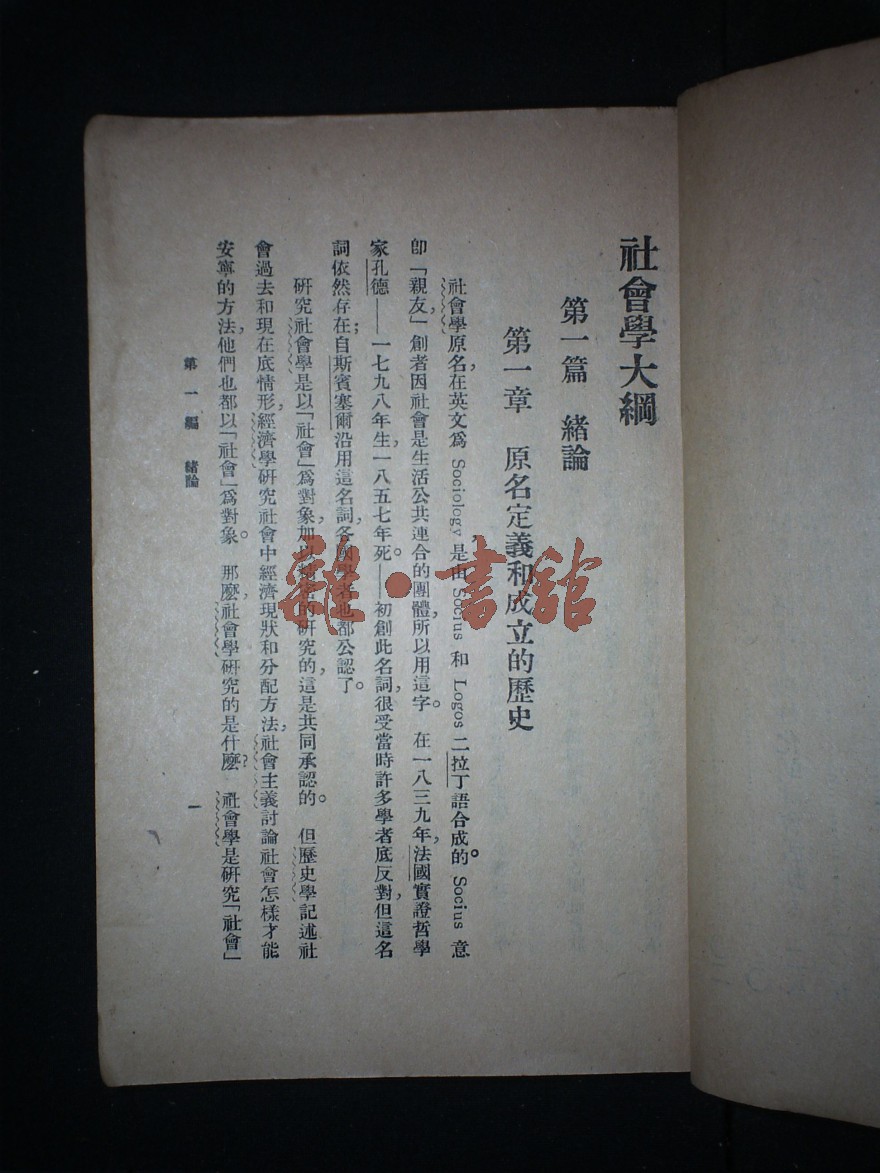 社會學大綱
第一篇　緒論
第一章　原名定義和成立的歷史
社會學原名，在英文爲 Sociology，是由 Socius 和 Logos 二拉丁語合成的。Socius 意
卽「親友，」創者因社會是生活公共連合的團體，所以用這字。　在一八三九年，法國實證哲學
家孔德——一七九八年生，一八五七年死。——初創此名詞，很受當時許多學者底反對，但這名
詞依然存在；自斯賓塞爾沿用這名詞，各國學者也都公認了。
研究社會學是以「社會」爲對象，加以精密的研究的，這是共同承認的。　但歷史學記述社
會過去和現在底情形，經濟學研究社會中經濟現狀和分配方法，社會主義討論社會怎樣才能
安寧的方法，他們也都以「社會」爲對象。　那麼，社會學研究的是什麼？　社會學是研究「社會」
第一編　緒論
一
雜·書館